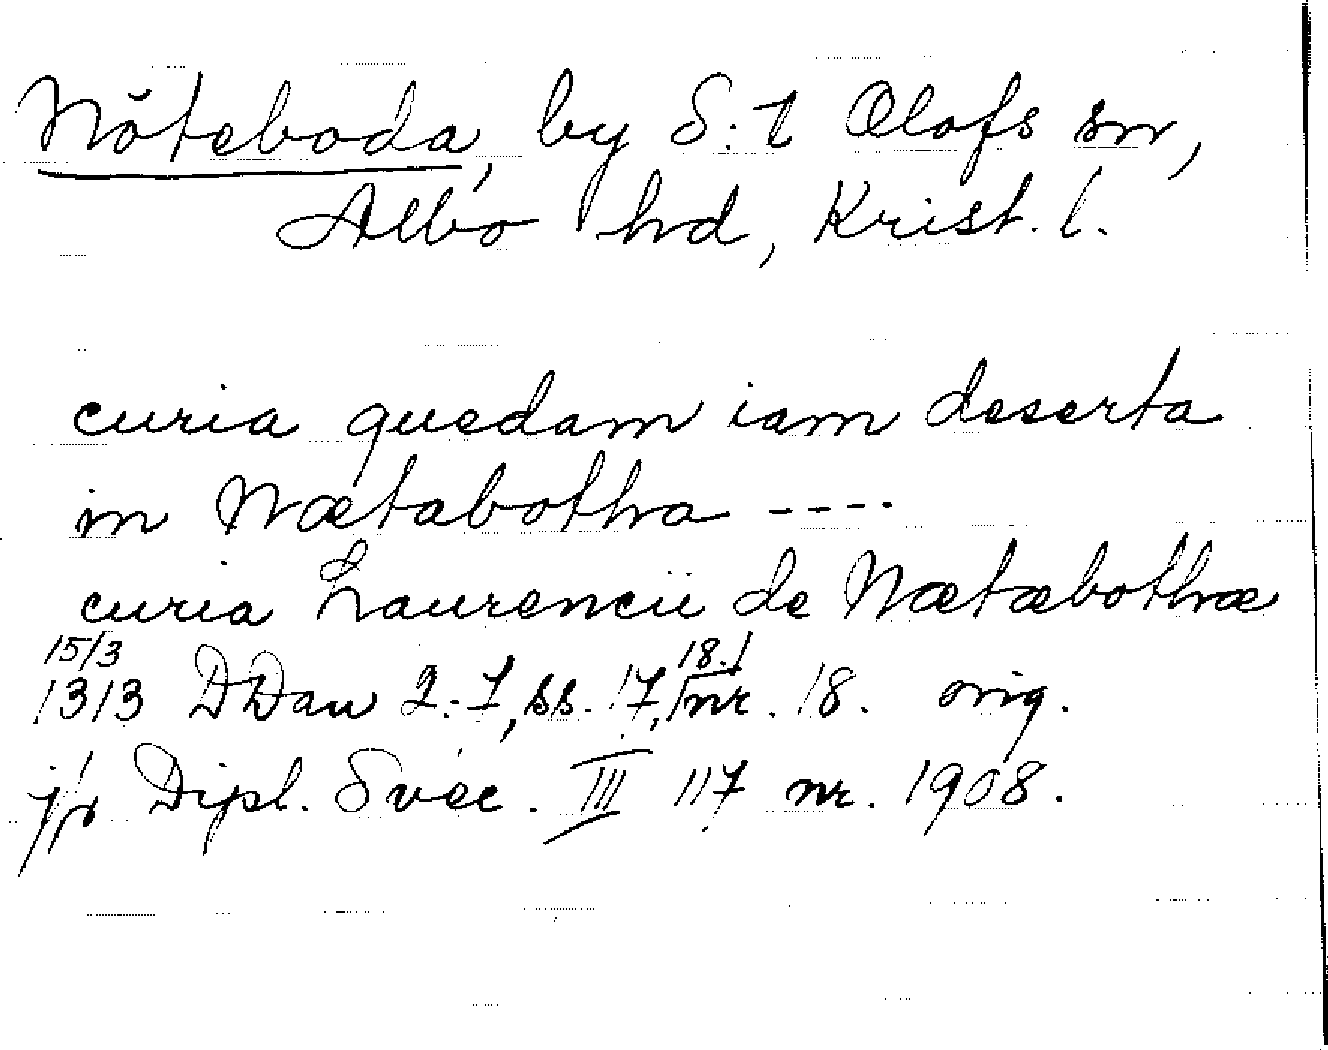 Nöteboda, by S:t Olofs sn,
Albo hd, Krist. l.
curia quedam iam deserta
in Nætabothra ----
curia Laurencii de Nætæbothræ
15/3
1313 DDan 2:7, ss. 17, 18./ nr. 18. orig.
jfr Dipl. Svec. III 117 nr. 1908.